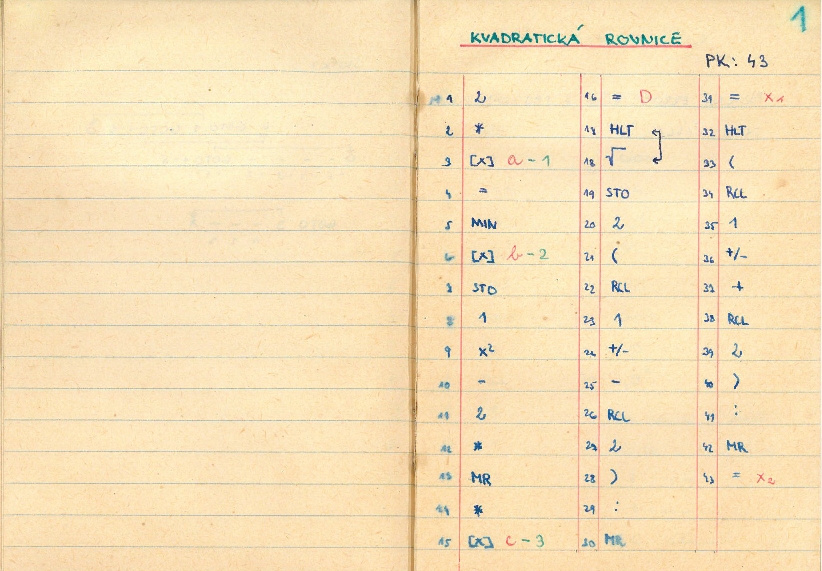 1
KVADRATICKÁ ROVNICE
PK: 43
1 2
2 *
3 [x] a - 1
4 =
5 MIN
6 [x] b - 2
7 STO
8 1
9 x²
10 -
11 2
12 *
13 MR
14 *
15 [x] c - 3
16 = D
17 HLT
18 √
19 STO
20 2
21 (
22 RCL
23 1
24 +/-
25 -
26 RCL
27 2
28 )
29 :
30 MR
31 = x₁
32 HLT
33 (
34 RCL
35 1
36 +/-
37 +
38 RCL
39 2
40 )
41 :
42 MR
43 = x₂